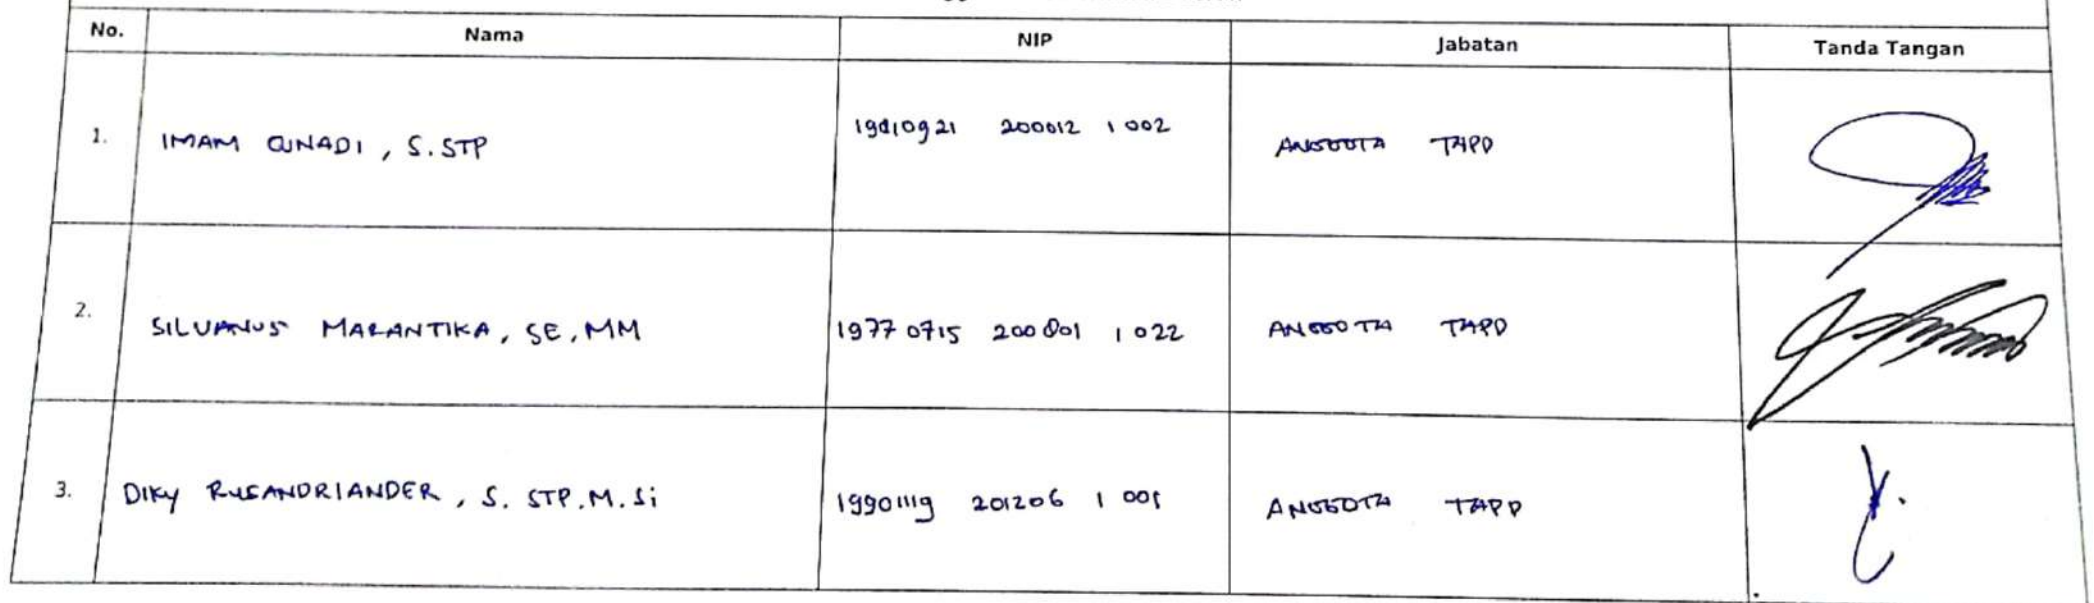 No. Nama NIP Jabatan Tanda Tangan
1. IMAM GUNADI, S.STP 19810921 200012 1 002 ANGGOTA TAPD
2. SILVANUS MARANTIKA, SE, MM 19770715 200801 1 022 ANGGOTA TAPD
3. DIKY RUSANDRIANDER, S. STP.M.Si 19901119 201206 1 001 ANGGOTA TAPD